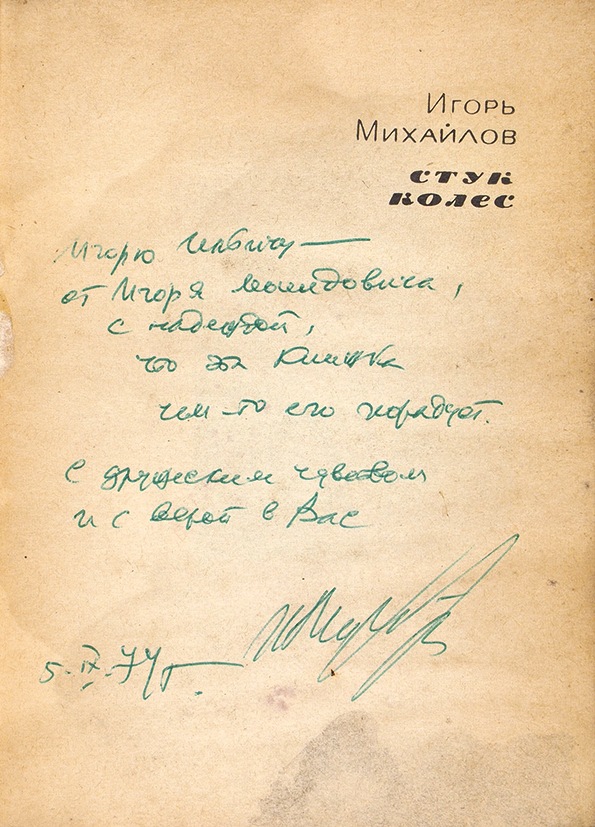 Игорь
Михайлов
стук
колес
Игорю Ильичу —
от Игоря Леонидовича,
с надеждой,
что эта книжка
чем-то его порадует.
С дружеским чувством
и с верой в Вас
5.IX.74г.